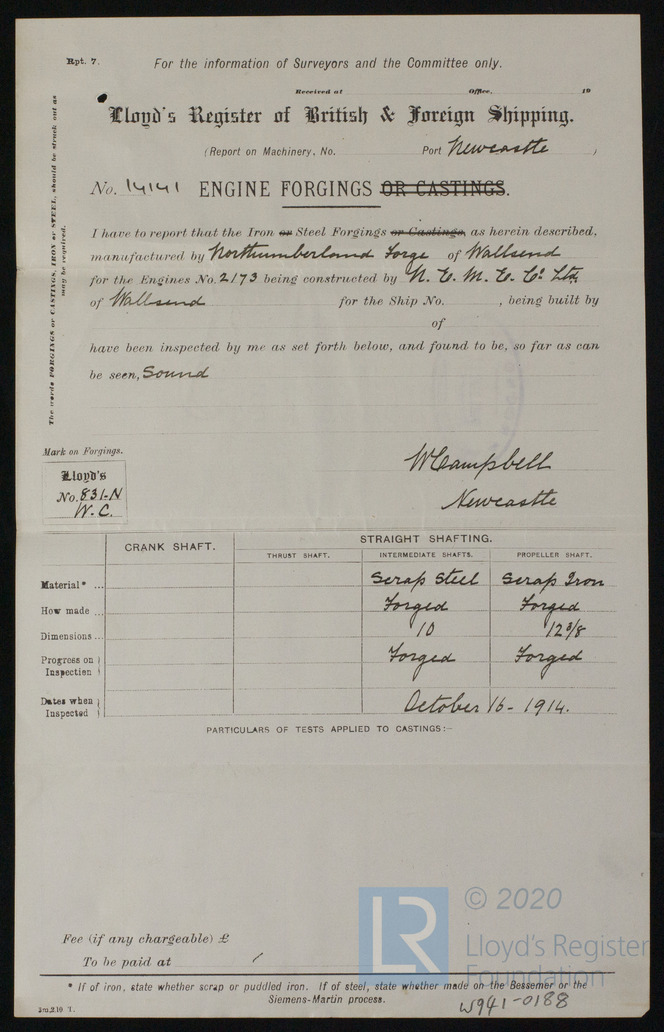 Rpt. 7.
For the information of Surveyors and the Committee only.
Received at Office, 19
Lloyd's Register of British & Foreign Shipping.
(Report on Machinery, No. Port Newcastle )
No. 14141 ENGINE FORGINGS OR CASTINGS.
The words FORGINGS or CASTINGS, IRON or STEEL, should be struck out as
may be required.
I have to report that the Iron or Steel Forgings or Castings, as herein described,
manufactured by Northumberland Forge of Wallsend
for the Engines No. 2173 being constructed by N. E. M. E. Co. Ltd.
of Wallsend for the Ship No. , being built by
of
have been inspected by me as set forth below, and found to be, so far as can
be seen, Sound
Mark on Forgings.
Lloyd's
No. 831-N
W.C.
W Campbell
Newcastle
CRANK SHAFT. STRAIGHT SHAFTING.
THRUST SHAFT. INTERMEDIATE SHAFTS. PROPELLER SHAFT.
Material* ... Scrap Steel Scrap Iron
How made ... Forged Forged
Dimensions ... 10 12 3/8
Progress on Inspection Forged Forged
Dates when Inspected October 16 - 1914.
PARTICULARS OF TESTS APPLIED TO CASTINGS:—
Fee (if any chargeable) £
To be paid at
* If of iron, state whether scrap or puddled iron. If of steel, state whether made on the Bessemer or the
Siemens-Martin process.
W941-0188
LR
© 2020
Lloyd's Register
Foundation